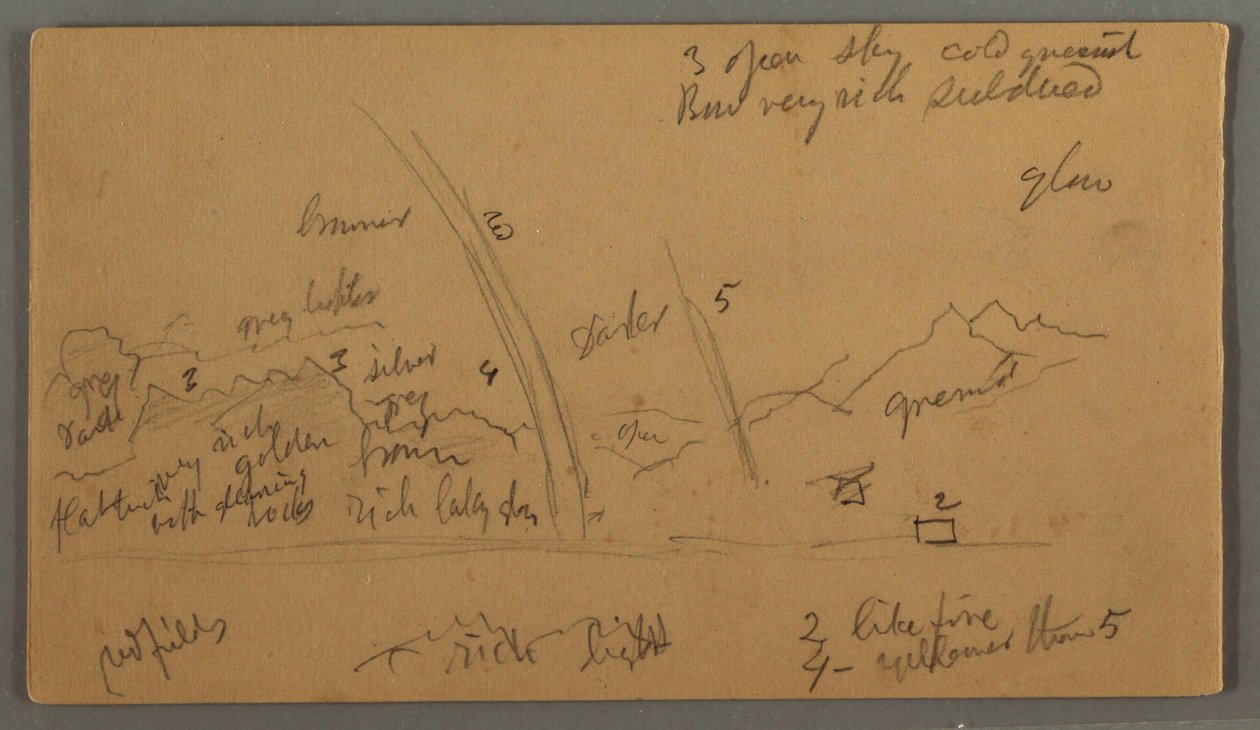 3 open sky cold greenish
Bow very rich subdued
glow
browner
3
grey lighter
5
darker
3
3
silver
grey
4
grey
dark
greenish
open
very rich
golden
brown
with gleaming
rocks
rich laky sky
2
red fields
rich light
2 like fire
4 - yellower than 5